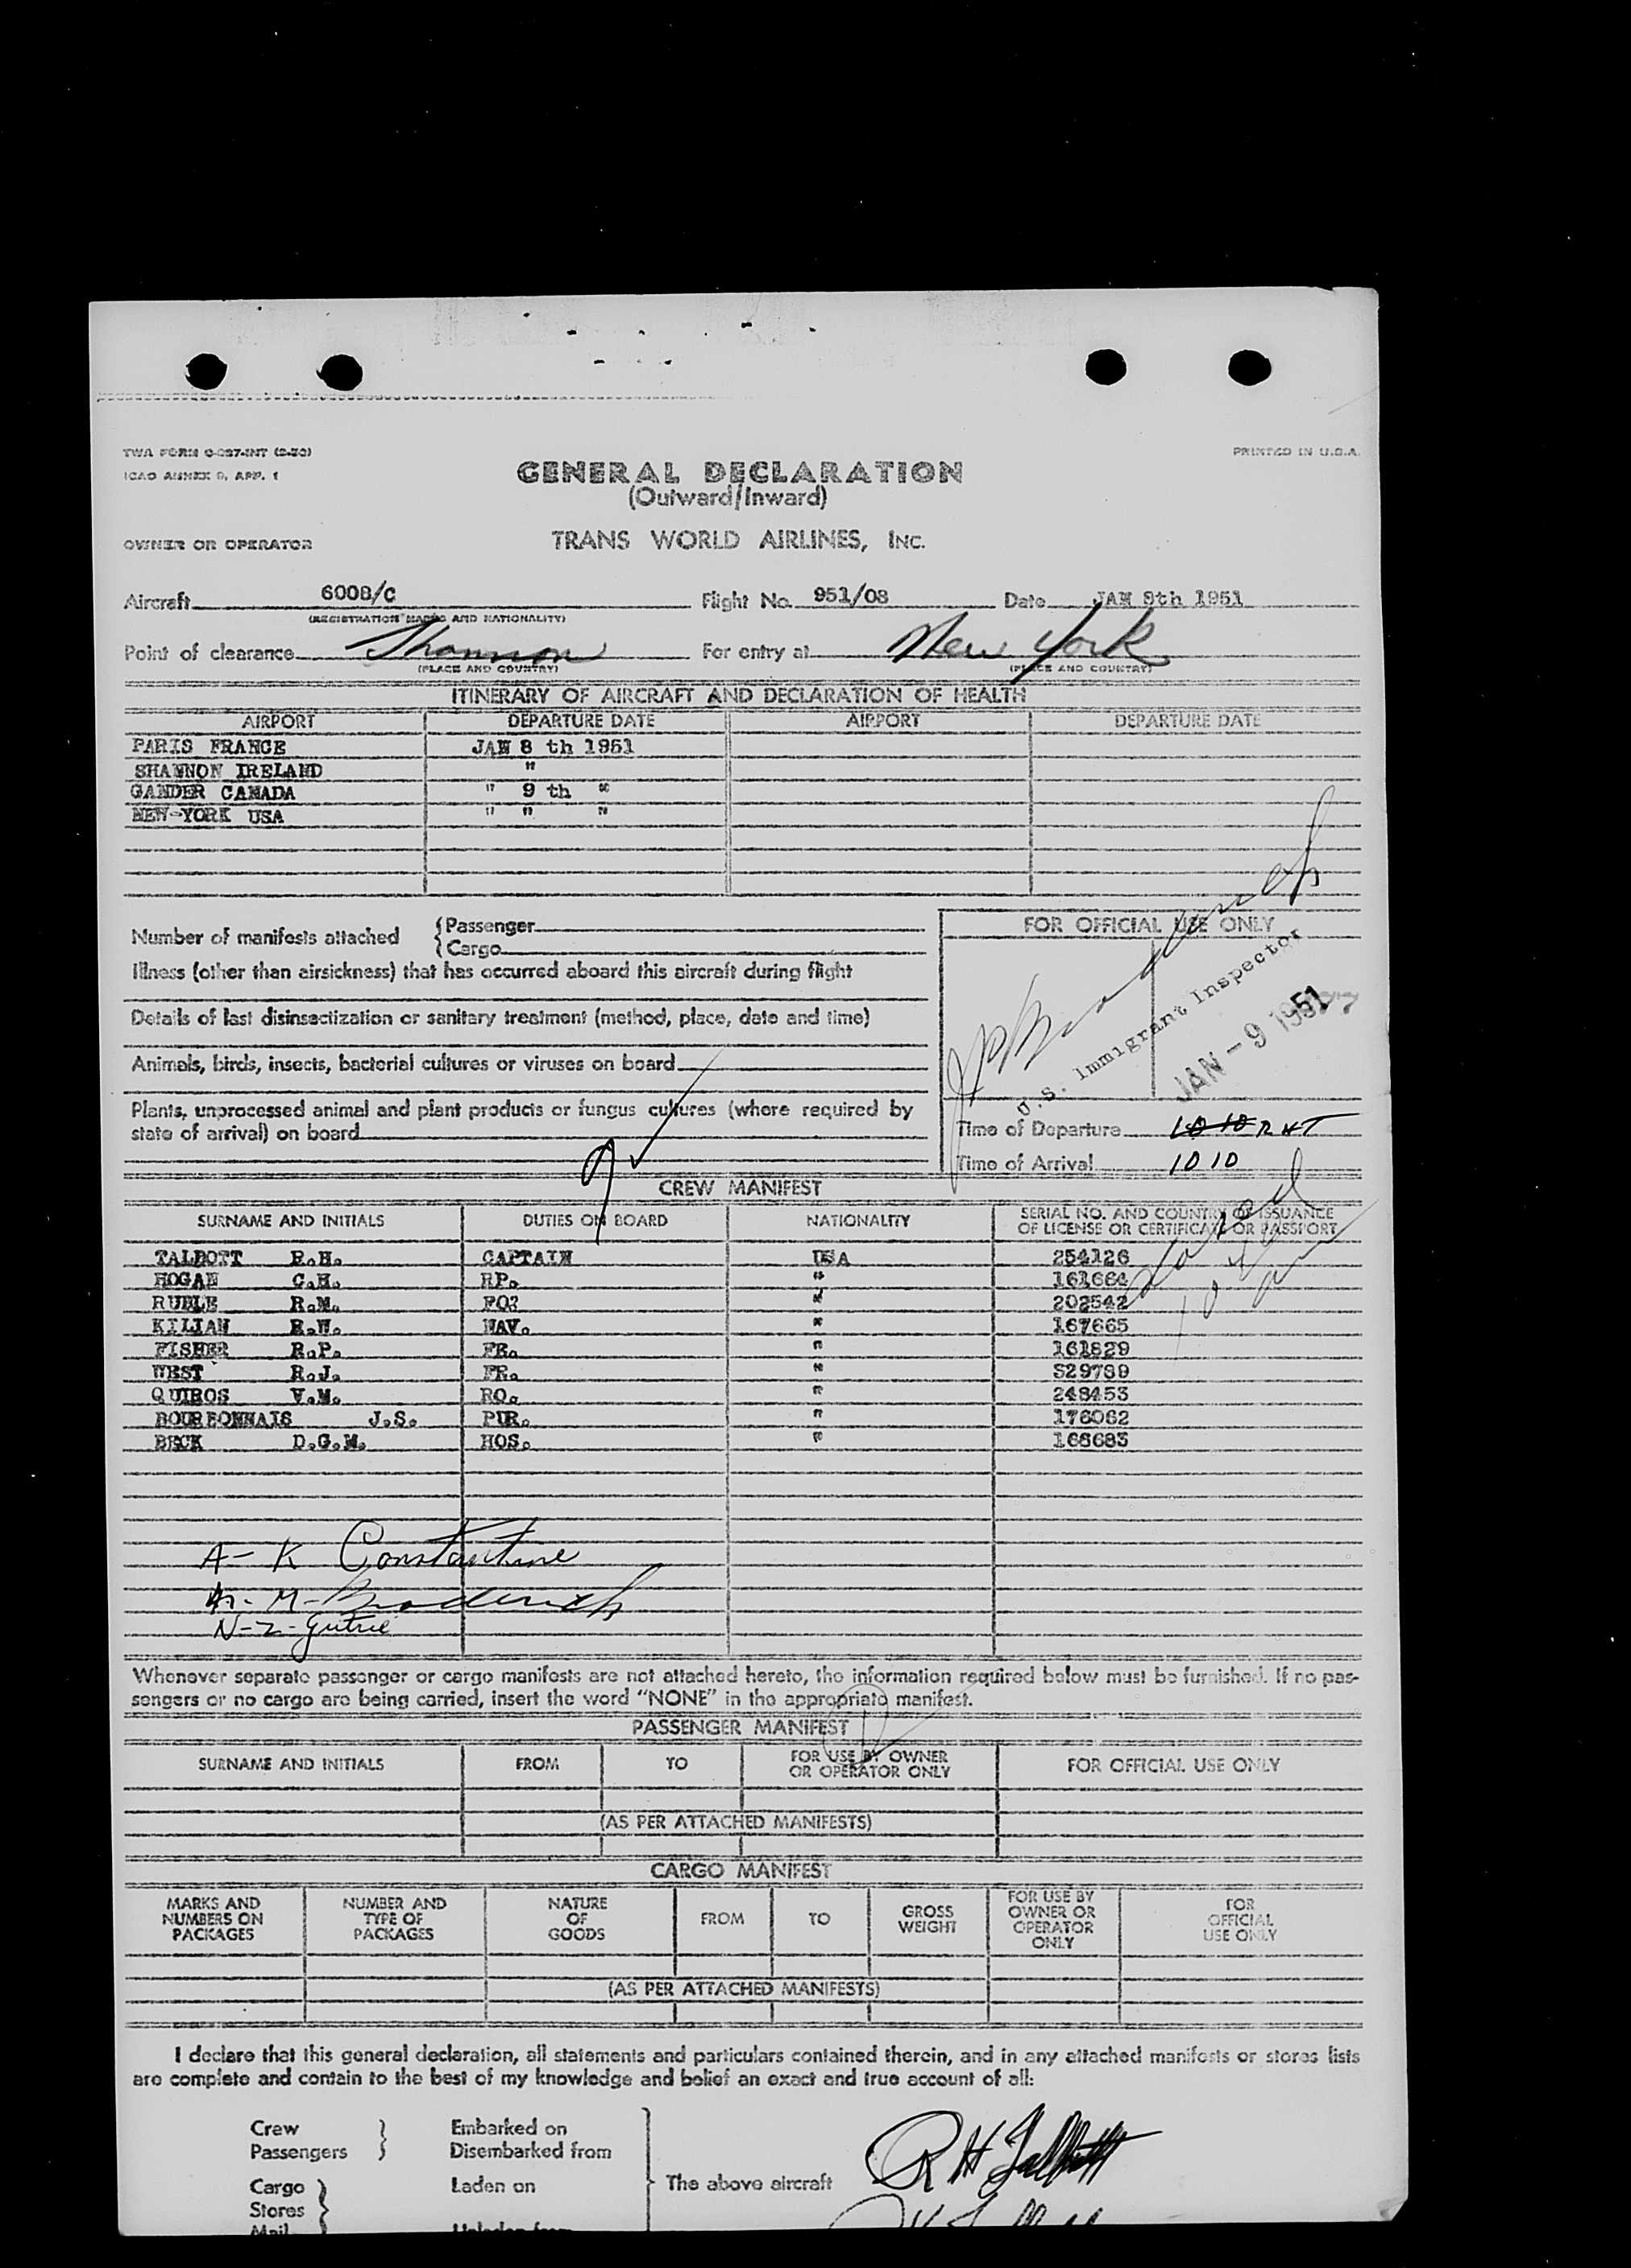 TWA FORM O-027-INT (2-50)
PRINTED IN U.S.A.
ICAO ANNEX 9, APP. 1
GENERAL DECLARATION
(Outward/Inward)
OWNER OR OPERATOR TRANS WORLD AIRLINES, INC.
Aircraft 6008/C Flight No. 951/08 Date JAN 9th 1951
(REGISTRATION MARKS AND NATIONALITY)
Point of clearance Shannon For entry at New York
(PLACE AND COUNTRY) (PLACE AND COUNTRY)
ITINERARY OF AIRCRAFT AND DECLARATION OF HEALTH
AIRPORT DEPARTURE DATE AIRPORT DEPARTURE DATE
PARIS FRANCE JAN 8 th 1951
SHANNON IRELAND "
GANDER CANADA " 9 th "
NEW-YORK USA " " "
Number of manifests attached { Passenger
{ Cargo
Illness (other than airsickness) that has occurred aboard this aircraft during flight
Details of last disinsectization or sanitary treatment (method, place, date and time)
Animals, birds, insects, bacterial cultures or viruses on board
Plants, unprocessed animal and plant products or fungus cultures (where required by
state of arrival) on board
FOR OFFICIAL USE ONLY
U.S. Immigrant Inspector
JAN - 9 1951
Time of Departure 1010 RHT
Time of Arrival 1010
CREW MANIFEST
SURNAME AND INITIALS DUTIES ON BOARD NATIONALITY SERIAL NO. AND COUNTRY OF ISSUANCE
OF LICENSE OR CERTIFICATE OR PASSPORT
TALBOTT R.H. CAPTAIN USA 254126
HOGAN C.H. RP. " 161664
RUBLE R.M. FO? " 202542
KILIAN R.W. NAV. " 167665
FISHER R.P. FE. " 161829
WEST R.J. FE. " 529789
QUIROS V.M. RO. " 248453
BOURBONNAIS J.S. PUR. " 176062
BECK D.G.M. HOS. " 168683
A- K Constantine
M- Broderick
N-Z- Gutrie
Whenever separate passenger or cargo manifests are not attached hereto, the information required below must be furnished. If no pas-
sengers or no cargo are being carried, insert the word "NONE" in the appropriate manifest.
PASSENGER MANIFEST
SURNAME AND INITIALS FROM TO FOR USE BY OWNER
OR OPERATOR ONLY FOR OFFICIAL USE ONLY
(AS PER ATTACHED MANIFESTS)
CARGO MANIFEST
MARKS AND
NUMBERS ON
PACKAGES
NUMBER AND
TYPE OF
PACKAGES
NATURE
OF
GOODS
FROM
TO
GROSS
WEIGHT
FOR USE BY
OWNER OR
OPERATOR
ONLY
FOR
OFFICIAL
USE ONLY
(AS PER ATTACHED MANIFESTS)
I declare that this general declaration, all statements and particulars contained therein, and in any attached manifests or stores lists
are complete and contain to the best of my knowledge and belief an exact and true account of all:
Crew } Embarked on
Passengers } Disembarked from
Cargo } Laden on
Stores
Mail Unladen from
The above aircraft R H Talbott